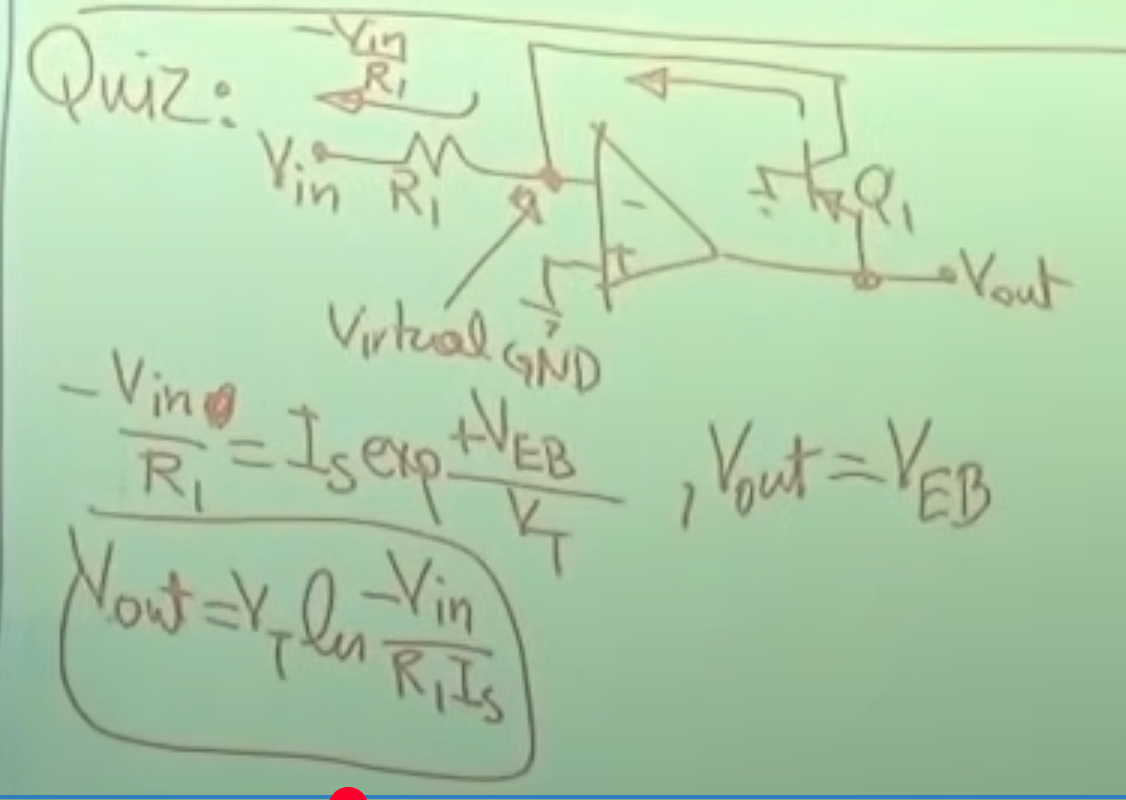 Quiz:
-Vin
R1
Vin
R1
-
+
Q1
Vout
Virtual GND
-Vin / R1 = Is exp +VEB / VT , Vout = VEB
Vout = VT ln -Vin / R1 Is